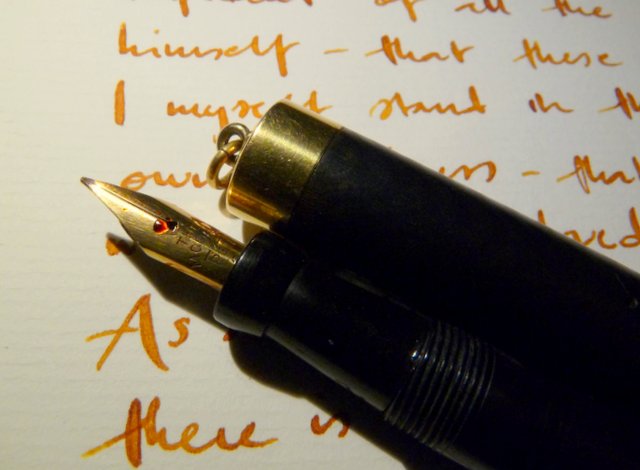 of all the
himself - that these
I myself stand in th
own ss - that
loved
As
there is